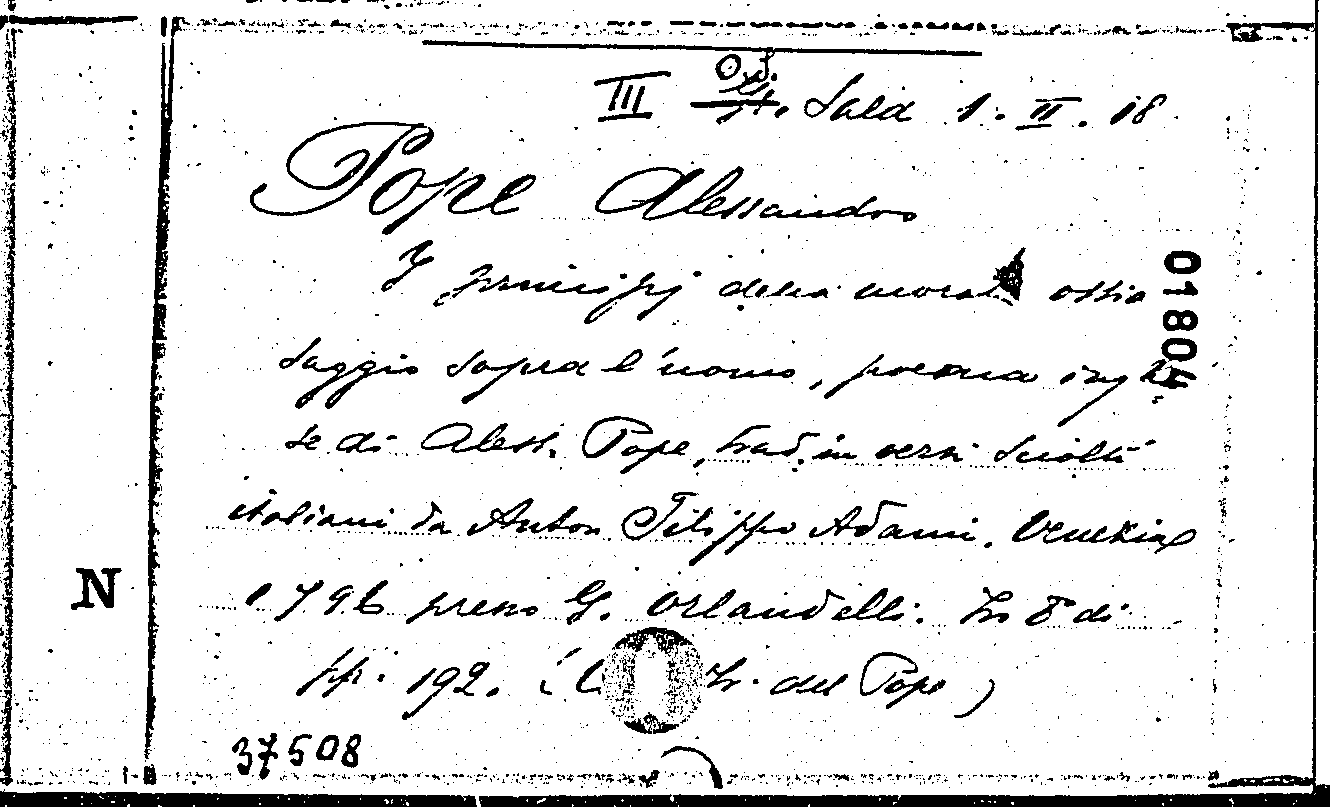 III Sala 1. II. 18
Pope Alessandro
I principj della morale ossia
saggio sopra l'uomo, poema ingle
se di Aless. Pope, trad. in versi sciolti
italiani da Anton Filippo Adami. Venezia
1796 presso G. Orlandelli. In 8° di
pp. 192. ( del Pope)
37508
N
01804